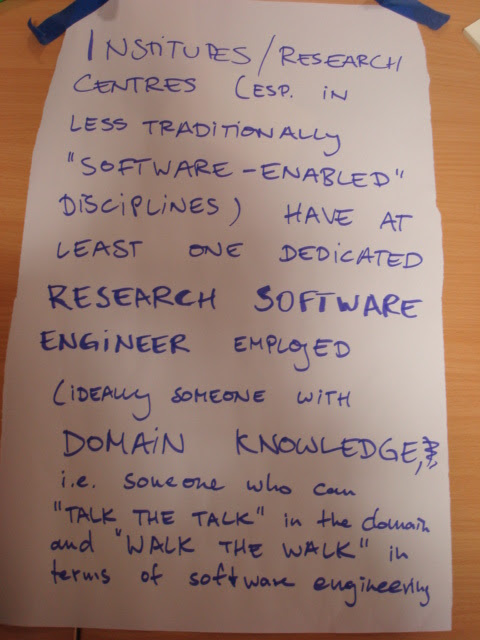 INSTITUTES/RESEARCH
CENTRES (ESP. IN
LESS TRADITIONALLY
"SOFTWARE-ENABLED"
DISCIPLINES) HAVE AT
LEAST ONE DEDICATED
RESEARCH SOFTWARE
ENGINEER EMPLOYED
(IDEALLY SOMEONE WITH
DOMAIN KNOWLEDGE,
i.e. someone who can
"TALK THE TALK" in the domain
and "WALK THE WALK" in
terms of software engineering